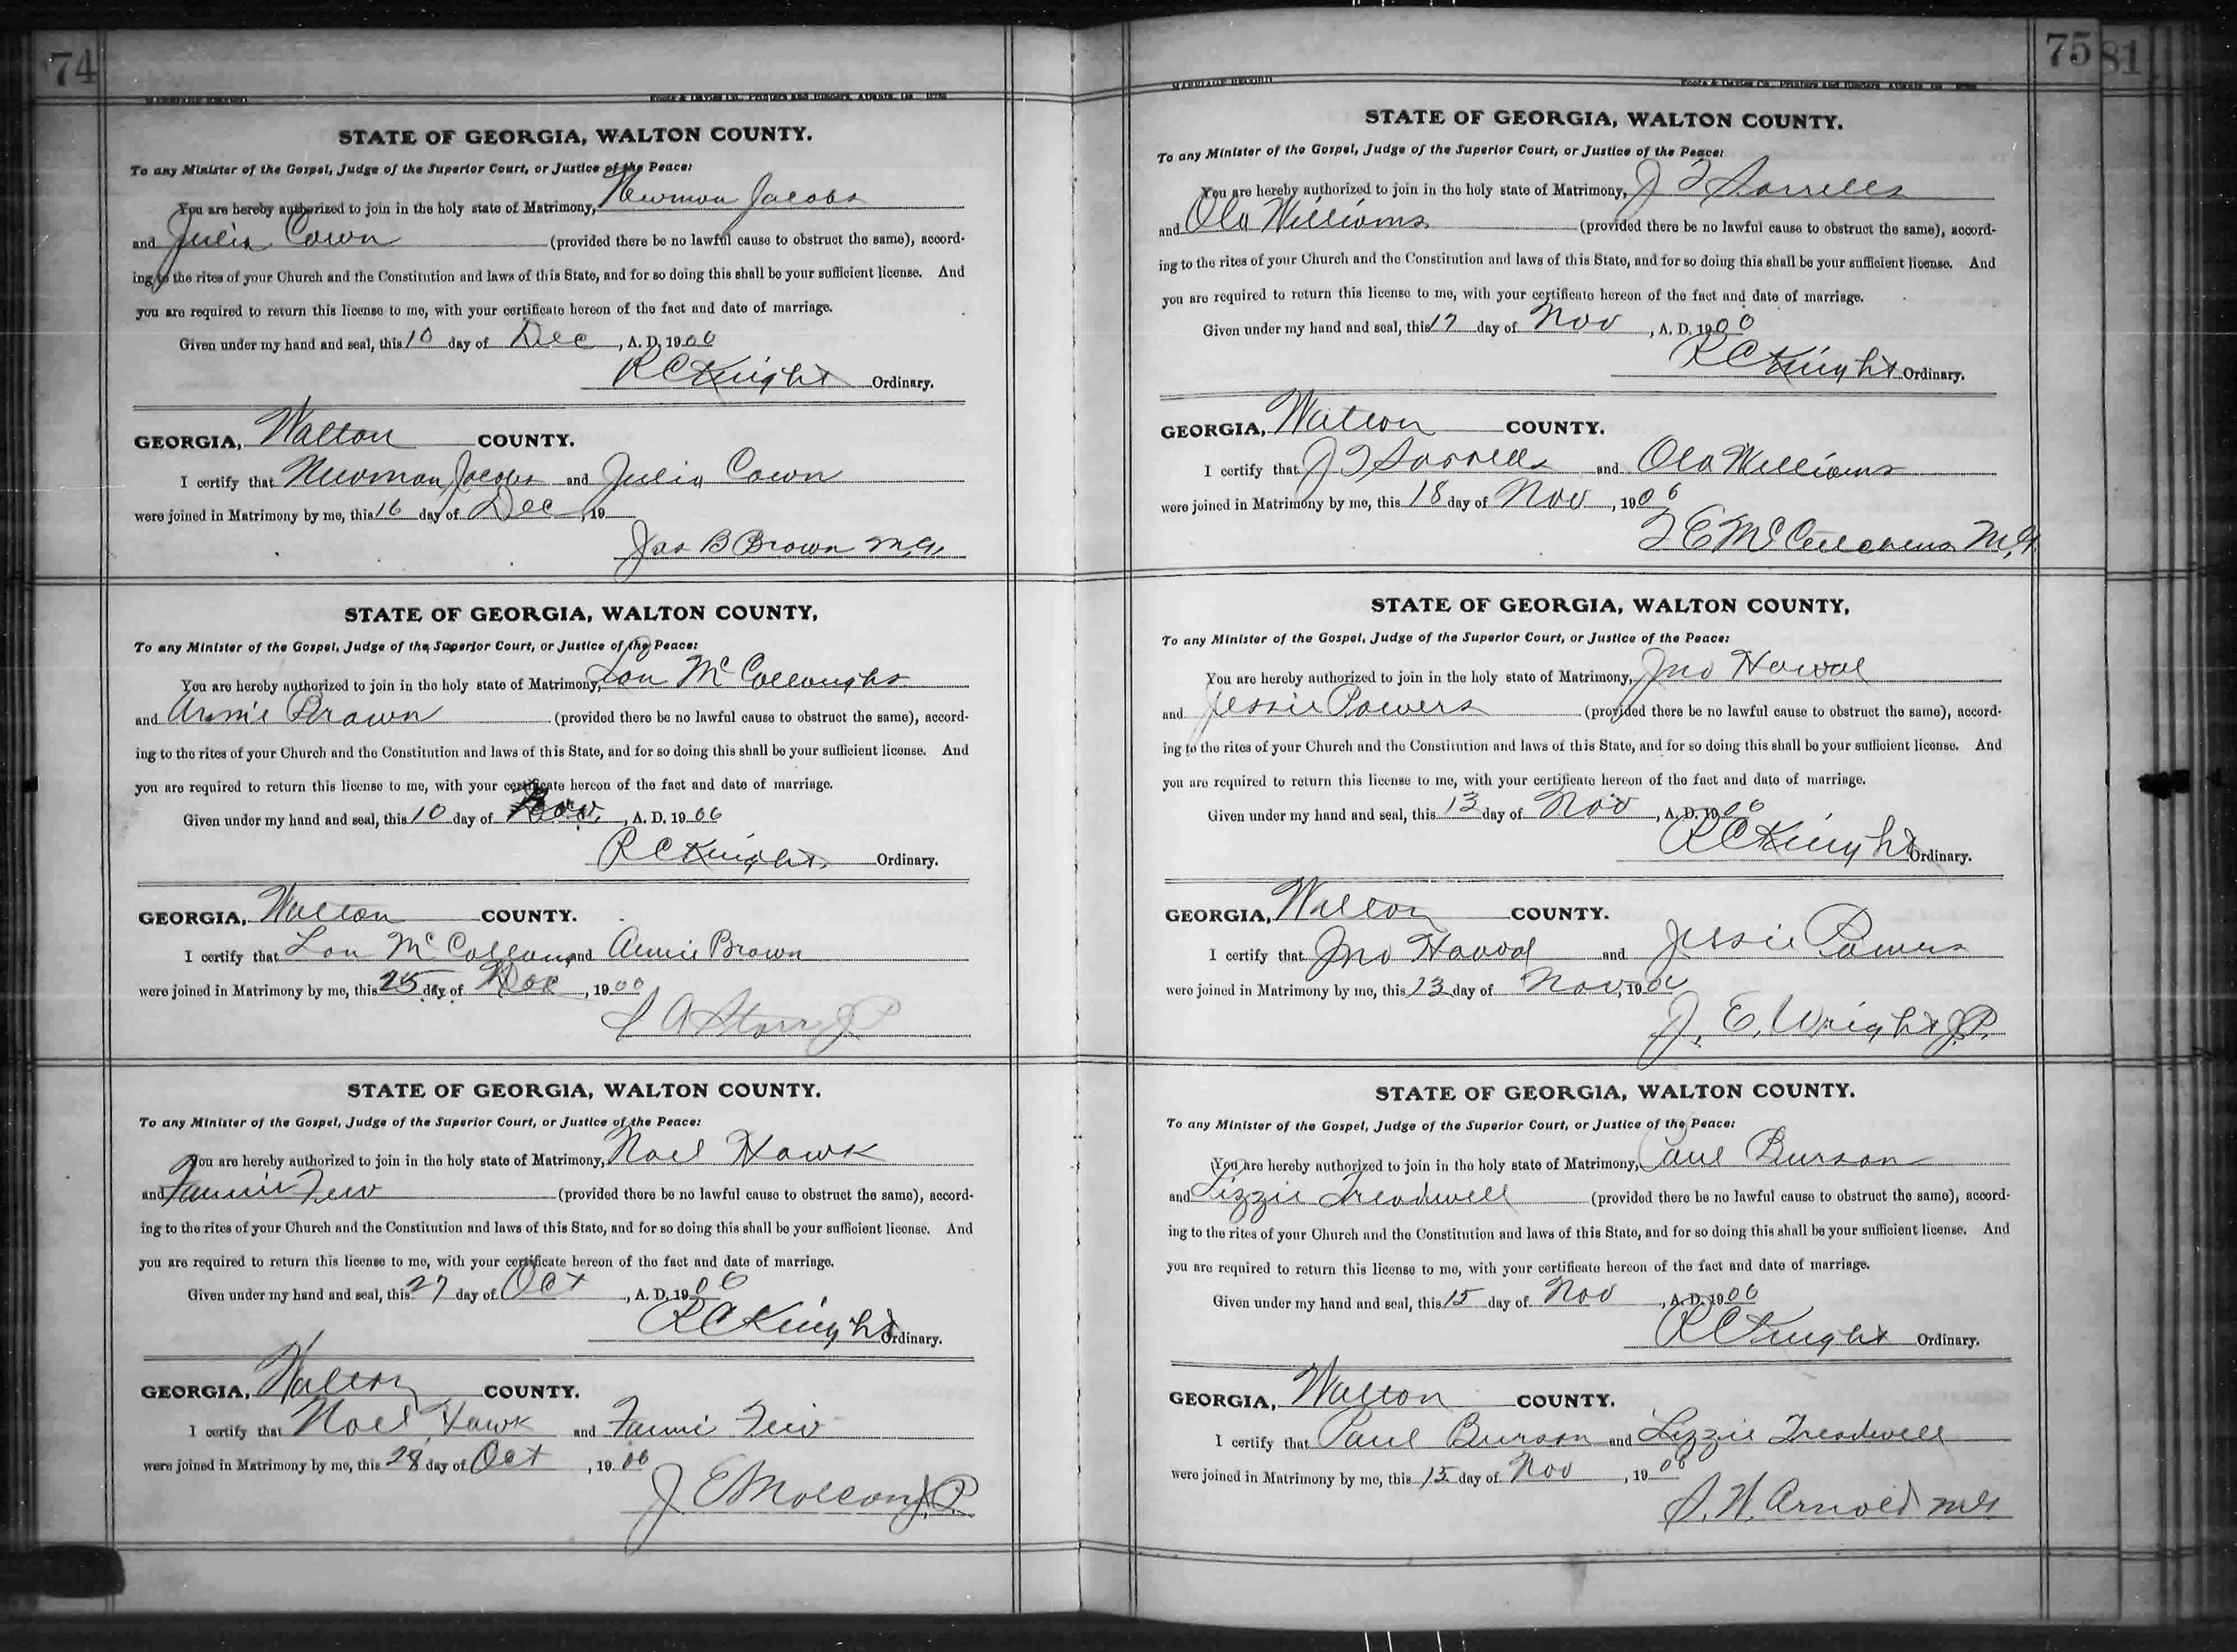 74
MARRIAGE RECORD
Foote & Davies Co., Printers and Binders, Atlanta, Ga.
STATE OF GEORGIA, WALTON COUNTY.
To any Minister of the Gospel, Judge of the Superior Court, or Justice of the Peace:
You are hereby authorized to join in the holy state of Matrimony, Newman Jacobs
and Julia Cown (provided there be no lawful cause to obstruct the same), accord-
ing to the rites of your Church and the Constitution and laws of this State, and for so doing this shall be your sufficient license. And
you are required to return this license to me, with your certificate hereon of the fact and date of marriage.
Given under my hand and seal, this 10 day of Dec, A. D. 1906
R C Knight Ordinary.
GEORGIA, Walton COUNTY.
I certify that Newman Jacobs and Julia Cown
were joined in Matrimony by me, this 16 day of Dec, 19
Jas B Brown M.G.
STATE OF GEORGIA, WALTON COUNTY,
To any Minister of the Gospel, Judge of the Superior Court, or Justice of the Peace:
You are hereby authorized to join in the holy state of Matrimony, Lon McColloughs
and Annie Brown (provided there be no lawful cause to obstruct the same), accord-
ing to the rites of your Church and the Constitution and laws of this State, and for so doing this shall be your sufficient license. And
you are required to return this license to me, with your certificate hereon of the fact and date of marriage.
Given under my hand and seal, this 10 day of , A. D. 1906
R C Knight Ordinary.
GEORGIA, Walton COUNTY.
I certify that Lon and Annie Brown
were joined in Matrimony by me, this 25 day of Dec, 1906
A Starr J P
STATE OF GEORGIA, WALTON COUNTY.
To any Minister of the Gospel, Judge of the Superior Court, or Justice of the Peace:
You are hereby authorized to join in the holy state of Matrimony, Noel Hawk
and Fannie Few (provided there be no lawful cause to obstruct the same), accord-
ing to the rites of your Church and the Constitution and laws of this State, and for so doing this shall be your sufficient license. And
you are required to return this license to me, with your certificate hereon of the fact and date of marriage.
Given under my hand and seal, this 27 day of Oct, A. D. 1906
R C Knight Ordinary.
GEORGIA, Walton COUNTY.
I certify that Noel Hawk and Fannie Few
were joined in Matrimony by me, this 28 day of Oct, 1906
J. E J.P.
75
81
MARRIAGE RECORD
Foote & Davies Co., Printers and Binders, Atlanta, Ga.
STATE OF GEORGIA, WALTON COUNTY.
To any Minister of the Gospel, Judge of the Superior Court, or Justice of the Peace:
You are hereby authorized to join in the holy state of Matrimony, J T Sorrells
and Ola Williams (provided there be no lawful cause to obstruct the same), accord-
ing to the rites of your Church and the Constitution and laws of this State, and for so doing this shall be your sufficient license. And
you are required to return this license to me, with your certificate hereon of the fact and date of marriage.
Given under my hand and seal, this 17 day of Nov, A. D. 1906
R C Knight Ordinary.
GEORGIA, Walton COUNTY.
I certify that J T Sorrells and Ola Williams
were joined in Matrimony by me, this 18 day of Nov, 1906
M.G.
STATE OF GEORGIA, WALTON COUNTY,
To any Minister of the Gospel, Judge of the Superior Court, or Justice of the Peace:
You are hereby authorized to join in the holy state of Matrimony, Jno Haval
and Jessie Powers (provided there be no lawful cause to obstruct the same), accord-
ing to the rites of your Church and the Constitution and laws of this State, and for so doing this shall be your sufficient license. And
you are required to return this license to me, with your certificate hereon of the fact and date of marriage.
Given under my hand and seal, this 13 day of Nov, A. D. 1906
R C Knight Ordinary.
GEORGIA, Walton COUNTY.
I certify that Jno Haval and Jessie Powers
were joined in Matrimony by me, this 13 day of Nov, 1906
J. E. Wright J.P.
STATE OF GEORGIA, WALTON COUNTY.
To any Minister of the Gospel, Judge of the Superior Court, or Justice of the Peace:
You are hereby authorized to join in the holy state of Matrimony, Paul Burson
and Lizzie Treadwell (provided there be no lawful cause to obstruct the same), accord-
ing to the rites of your Church and the Constitution and laws of this State, and for so doing this shall be your sufficient license. And
you are required to return this license to me, with your certificate hereon of the fact and date of marriage.
Given under my hand and seal, this 15 day of Nov, A. D. 1906
R C Knight Ordinary.
GEORGIA, Walton COUNTY.
I certify that Paul Burson and Lizzie Treadwell
were joined in Matrimony by me, this 15 day of Nov, 1906
S. W. Arnold M G